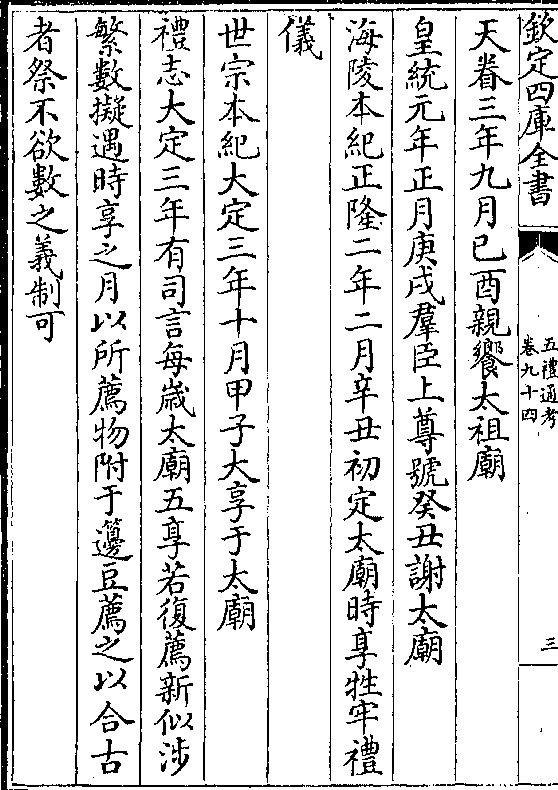 欽定四庫全書
五禮通考
卷九十四
三
天眷三年九月己酉親饗太祖廟
皇統元年正月庚戌羣臣上尊號癸丑謝太廟
海陵本紀正隆二年二月辛丑初定太廟時享牲牢禮
儀
世宗本紀大定三年十月甲子大享于太廟
禮志大定三年有司言每歲太廟五享若復薦新似涉
繁數擬遇時享之月以所薦物附于籩豆薦之以合古
者祭不欲數之義制可